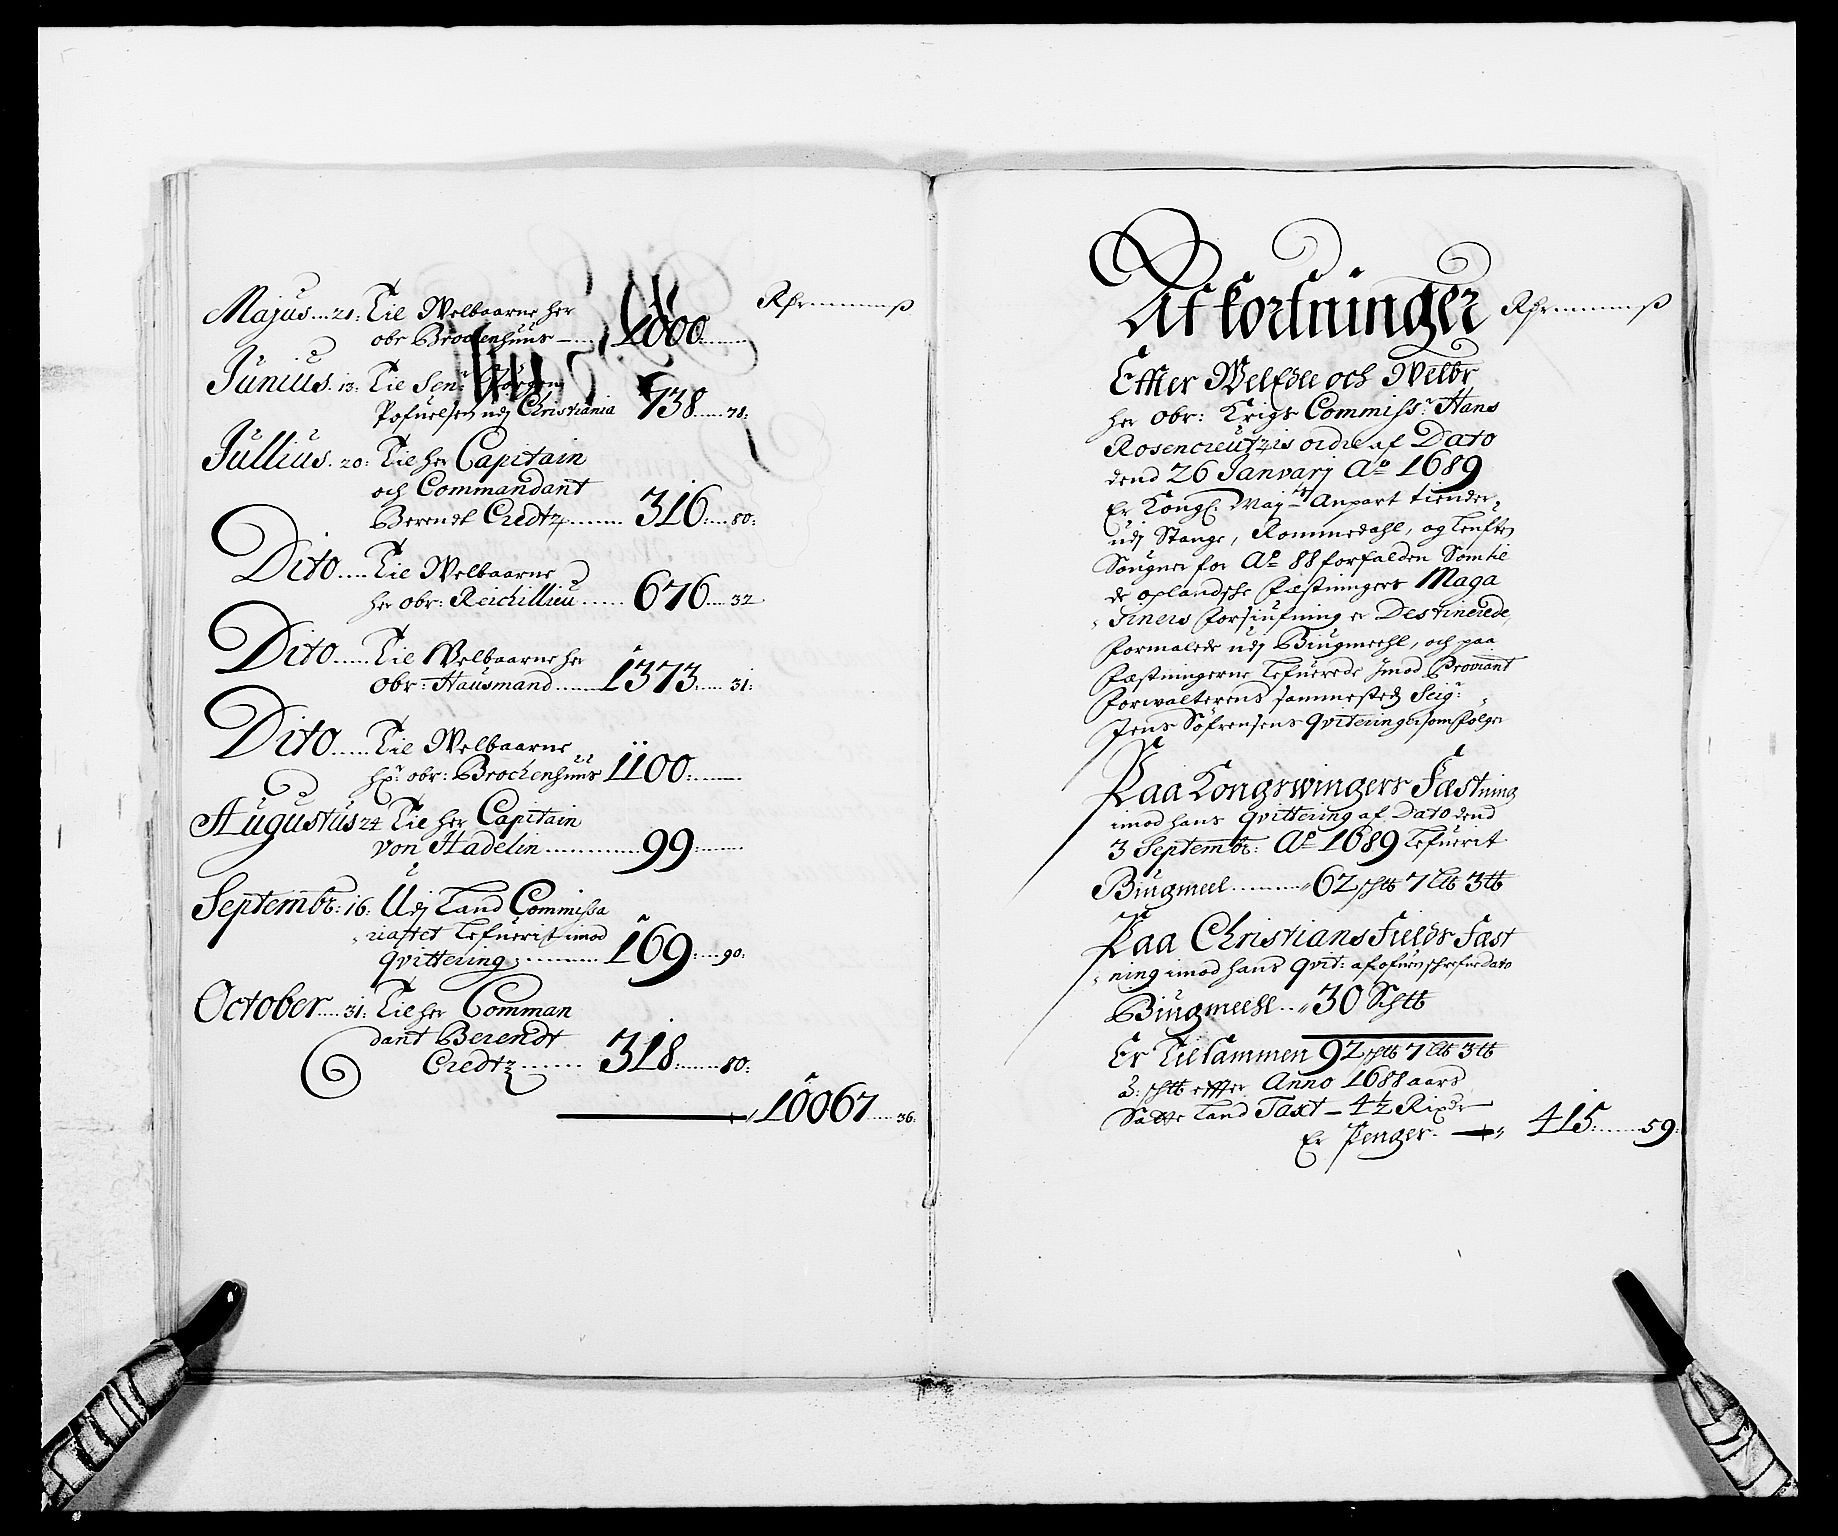 Majus... 21: Til Welbaarne her
obr Brochenhuus — 1000:
Junius. 13: Til Senr Jörgen
Pofuelsen udj Christiania 738 ..... 78:
Jullius. 20: Til her Capitain
och Commandant
Berendt Credtz ........ 316 .... 80:
Dito ..... Til Welbaarne
her obr: Reichillieu ...... 676 .... 32
Dito ..... Til Welbaarne her
obr: Hausmand ....... 1373 ..... 31:
Dito ..... Til Welbaarne
hr: obr: Brochenhuus 1100:
Augustus 24 Til her Capitain
von Hadelin ............ 99
Septembr: 16: Udj Land Commissa
riaftet Lefuerist imod
Qvittering ......... 169 .... 90:
October .... 31: Til her Comman
dant Berendt
Credtz ........ 318 ....... 80:
10067 .... 36:
Afkortninger
Effter WelEdle och Welbr
her obr: Krigs Commissr Hans
Rosencreutzis ordre af Dato
dend 26 Januarj Ao 1689
Er Kongl: Maytz Anpart tiender
udj Stange, Rommedahl, og Leufte
Sougner for Ao 88 forfalden Som til
de oplandske Fæstningers Maga
ziners forsiufning er Destinerede,
formalede udj Biugmeehl, och paa
Fæstningerne Lefuerede Jmod Proviant
forwalterens sammesteds Seigr:
Jens Söfrensens Qviteringer som følger
Paa Kongswingers Fæstning
imod hans Qvittering af Dato dend
3 Septembr: Ao 1689 Lefuerit
Biugmeel ........ 62 schtb 7 Ltb 3 tb
Paa Christiansfields Fæst
ning imod hans Qvit: af ofuenschrefne dato
Biugmeehl ... 30 Schtb
Er Tilsammen 92 schtb 7 Ltb 3 tb
à: schtb effter Anno 1688 aars
Satte Land Taxt — 4½ Rixdr
Er Penger. — 415 ...... 59: